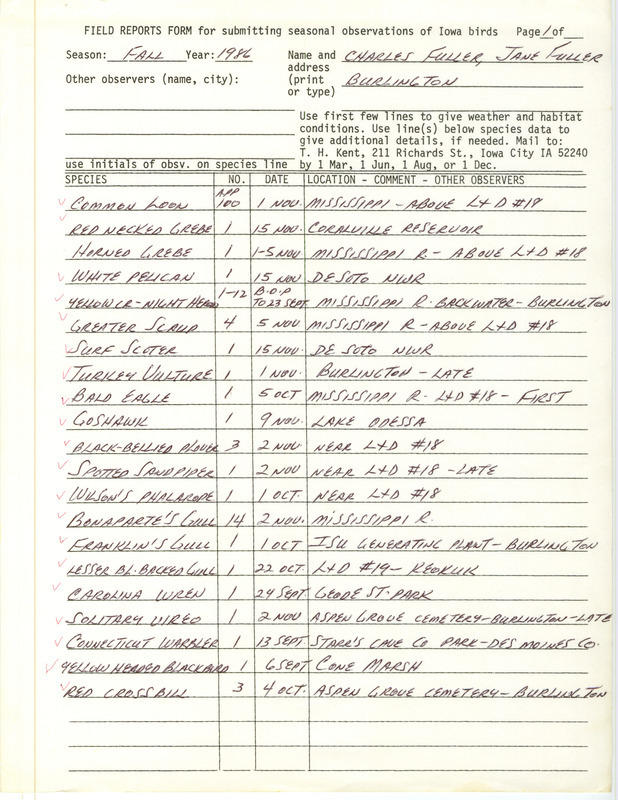 FIELD REPORTS FORM for submitting seasonal observations of Iowa birds Page 1 of
Season: FALL Year: 1986 Name and address (print or type) CHARLES FULLER, JANE FULLER
BURLINGTON
Other observers (name, city):
Use first few lines to give weather and habitat
conditions. Use line(s) below species data to
give additional details, if needed. Mail to:
T. H. Kent, 211 Richards St., Iowa City IA 52240
by 1 Mar, 1 Jun, 1 Aug, or 1 Dec.
use initials of obsv. on species line
SPECIES NO. DATE LOCATION - COMMENT - OTHER OBSERVERS
COMMON LOON APP 100 1 NOV. MISSISSIPPI - ABOVE L+D #18
RED NECKED GREBE 1 15 NOV. CORALVILLE RESERVOIR
HORNED GREBE 1 1-5 NOV MISSISSIPPI R - ABOVE L+D #18
WHITE PELICAN 1 15 NOV DESOTO NWR
YELLOW CR-NIGHT HERON 1-12 B.O.P TO 23 SEPT MISSISSIPPI R. BACKWATER - BURLINGTON
GREATER SCAUP 4 5 NOV MISSISSIPPI R - ABOVE L+D #18
SURF SCOTER 1 15 NOV. DE SOTO NWR
TURKEY VULTURE 1 1 NOV. BURLINGTON - LATE
BALD EAGLE 1 5 OCT MISSISSIPPI R. L+D #18 - FIRST
GOSHAWK 1 9 NOV. LAKE ODESSA
BLACK-BELLIED PLOVER 3 2 NOV. NEAR L+D #18
SPOTTED SANDPIPER 1 2 NOV NEAR L+D #18 - LATE
WILSON'S PHALAROPE 1 1 OCT. NEAR L+D #18
BONAPARTE'S GULL 14 2 NOV. MISSISSIPPI R.
FRANKLIN'S GULL 1 1 OCT ISU GENERATING PLANT - BURLINGTON
LESSER BL. BACKED GULL 1 22 OCT. L+D #19 - KEOKUK
CAROLINA WREN 1 24 SEPT GEODE ST. PARK
SOLITARY VIREO 1 2 NOV ASPEN GROVE CEMETERY - BURLINGTON - LATE
CONNECTICUT WARBLER 1 13 SEPT. STARR'S CAVE CO PARK - DES MOINES CO.
YELLOW HEADED BLACKBIRD 1 6 SEPT CONE MARSH
RED CROSSBILL 3 4 OCT. ASPEN GROVE CEMETERY - BURLINGTON